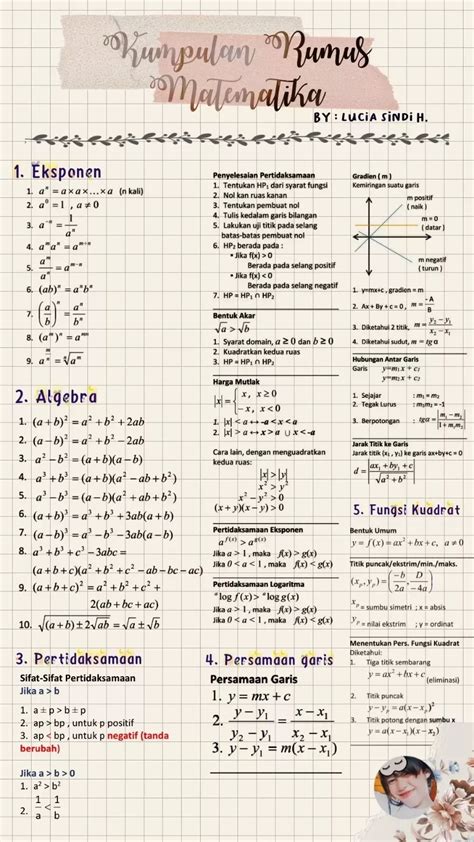 Kumpulan Rumus
Matematika
BY : LUCIA SINDI H.
1. Eksponen
1. aⁿ = a × a × ... × a (n kali)
2. a⁰ = 1 , a ≠ 0
3. a⁻ⁿ = 1/aⁿ
4. aᵐaⁿ = aᵐ⁺ⁿ
5. aᵐ/aⁿ = aᵐ⁻ⁿ
6. (ab)ⁿ = aⁿbⁿ
7. (a/b)ⁿ = aⁿ/bⁿ
8. (aᵐ)ⁿ = aᵐⁿ
9. a^(m/n) = ⁿ√aᵐ
2. Algebra
1. (a + b)² = a² + b² + 2ab
2. (a − b)² = a² + b² − 2ab
3. a² − b² = (a + b)(a − b)
4. a³ + b³ = (a + b)(a² − ab + b²)
5. a³ − b³ = (a − b)(a² + ab + b²)
6. (a + b)³ = a³ + b³ + 3ab(a + b)
7. (a − b)³ = a³ − b³ − 3ab(a − b)
8. a³ + b³ + c³ − 3abc =
(a + b + c)(a² + b² + c² − ab − bc − ac)
9. (a + b + c)² = a² + b² + c² +
2(ab + bc + ac)
10. √((a + b) ± 2√ab) = √a ± √b
3. Pertidaksamaan
Sifat-Sifat Pertidaksamaan
Jika a > b
1. a ± p > b ± p
2. ap > bp , untuk p positif
3. ap < bp , untuk p negatif (tanda
berubah)
Jika a > b > 0
1. a² > b²
2. 1/a < 1/b
Penyelesaian Pertidaksamaan
1. Tentukan HP₁ dari syarat fungsi
2. Nol kan ruas kanan
3. Tentukan pembuat nol
4. Tulis kedalam garis bilangan
5. Lakukan uji titik pada selang
batas-batas pembuat nol
6. HP₂ berada pada :
• Jika f(x) > 0
Berada pada selang positif
• Jika f(x) < 0
Berada pada selang negatif
7. HP = HP₁ ∩ HP₂
Bentuk Akar
√a > √b
1. Syarat domain, a ≥ 0 dan b ≥ 0
2. Kuadratkan kedua ruas
3. HP = HP₁ ∩ HP₂
Harga Mutlak
|x| = { x, x ≥ 0
−x, x < 0
1. |x| < a ↔ -a < x < a
2. |x| > a ↔ x > a ∪ x < -a
Cara lain, dengan menguadratkan
kedua ruas:
|x| > |y|
x² > y²
x² − y² > 0
(x + y)(x − y) > 0
Pertidaksamaan Eksponen
a^f(x) > a^g(x)
Jika a > 1 , maka f(x) > g(x)
Jika 0 < a < 1 , maka f(x) < g(x)
Pertidaksamaan Logaritma
ᵃlog f(x) > ᵃlog g(x)
Jika a > 1 , maka f(x) > g(x)
Jika 0 < a < 1 , maka f(x) < g(x)
4. Persamaan garis
Persamaan Garis
1. y = mx + c
2. (y − y₁)/(y₂ − y₁) = (x − x₁)/(x₂ − x₁)
3. y − y₁ = m(x − x₁)
Gradien ( m )
Kemiringan suatu garis
m positif
( naik )
m = 0
( datar )
m negatif
( turun )
1. y=mx+c , gradien = m
2. Ax + By + c = 0 , m = -A/B
3. Diketahui 2 titik, m = (y₂ − y₁)/(x₂ − x₁)
4. Diketahui sudut, m = tg α
Hubungan Antar Garis
Garis y=m₁x + c₁
y=m₂x + c₂
1. Sejajar : m₁ = m₂
2. Tegak Lurus : m₁m₂ = -1
3. Berpotongan : tgα = |(m₁ − m₂)/(1 + m₁m₂)|
Jarak Titik ke Garis
Jarak titik (x₁ , y₁) ke garis ax+by+c = 0
d = |(ax₁ + by₁ + c)/√(a² + b²)|
5. Fungsi Kuadrat
Bentuk Umum
y = f(x) = ax² + bx + c, a ≠ 0
Titik puncak/ekstrim/min./maks.
(xₚ, yₚ) = (−b/2a, D/−4a)
xₚ = sumbu simetri ; x = absis
yₚ = nilai ekstrim ; y = ordinat
Menentukan Pers. Fungsi Kuadrat
Diketahui:
1. Tiga titik sembarang
y = ax² + bx + c (eliminasi)
2. Titik puncak
y − yₚ = a(x − xₚ)²
3. Titik potong dengan sumbu x
y = a(x − x₁)(x − x₂)